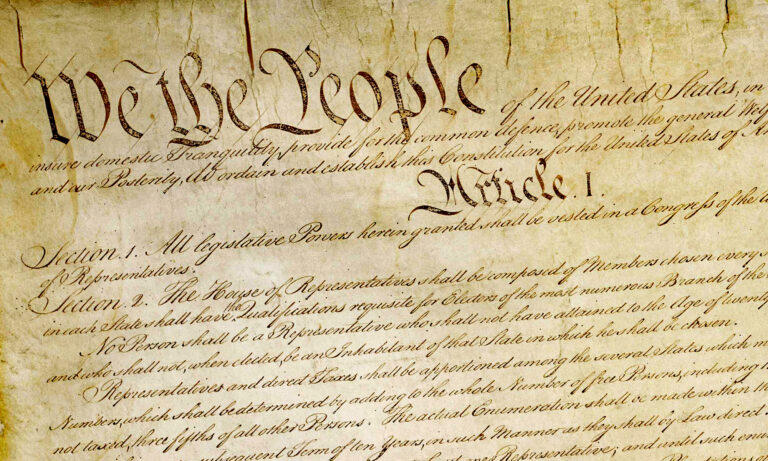 We the People of the United States, in
insure domestic Tranquility, provide for the common defence, promote the general Welf
and our Posterity, do ordain and establish this Constitution for the United States of Am
Article. I.
Section. 1. All legislative Powers herein granted shall be vested in a Congress of the
of Representatives.
Section. 2. The House of Representatives shall be composed of Members chosen every
in each State shall have the Qualifications requisite for Electors of the most numerous Branch of the
No Person shall be a Representative who shall not have attained to the Age of twenty
and who shall not, when elected, be an Inhabitant of that State in which he shall be chosen.
Representatives and direct Taxes shall be apportioned among the several States which m
Numbers, which shall be determined by adding to the whole Number of free Persons, including
not taxed, three fifths of all other Persons. The actual Enumeration shall be made within
subsequent Term of ten Years, in such Manner as they shall by Law direct
least one Representative; and until such enu